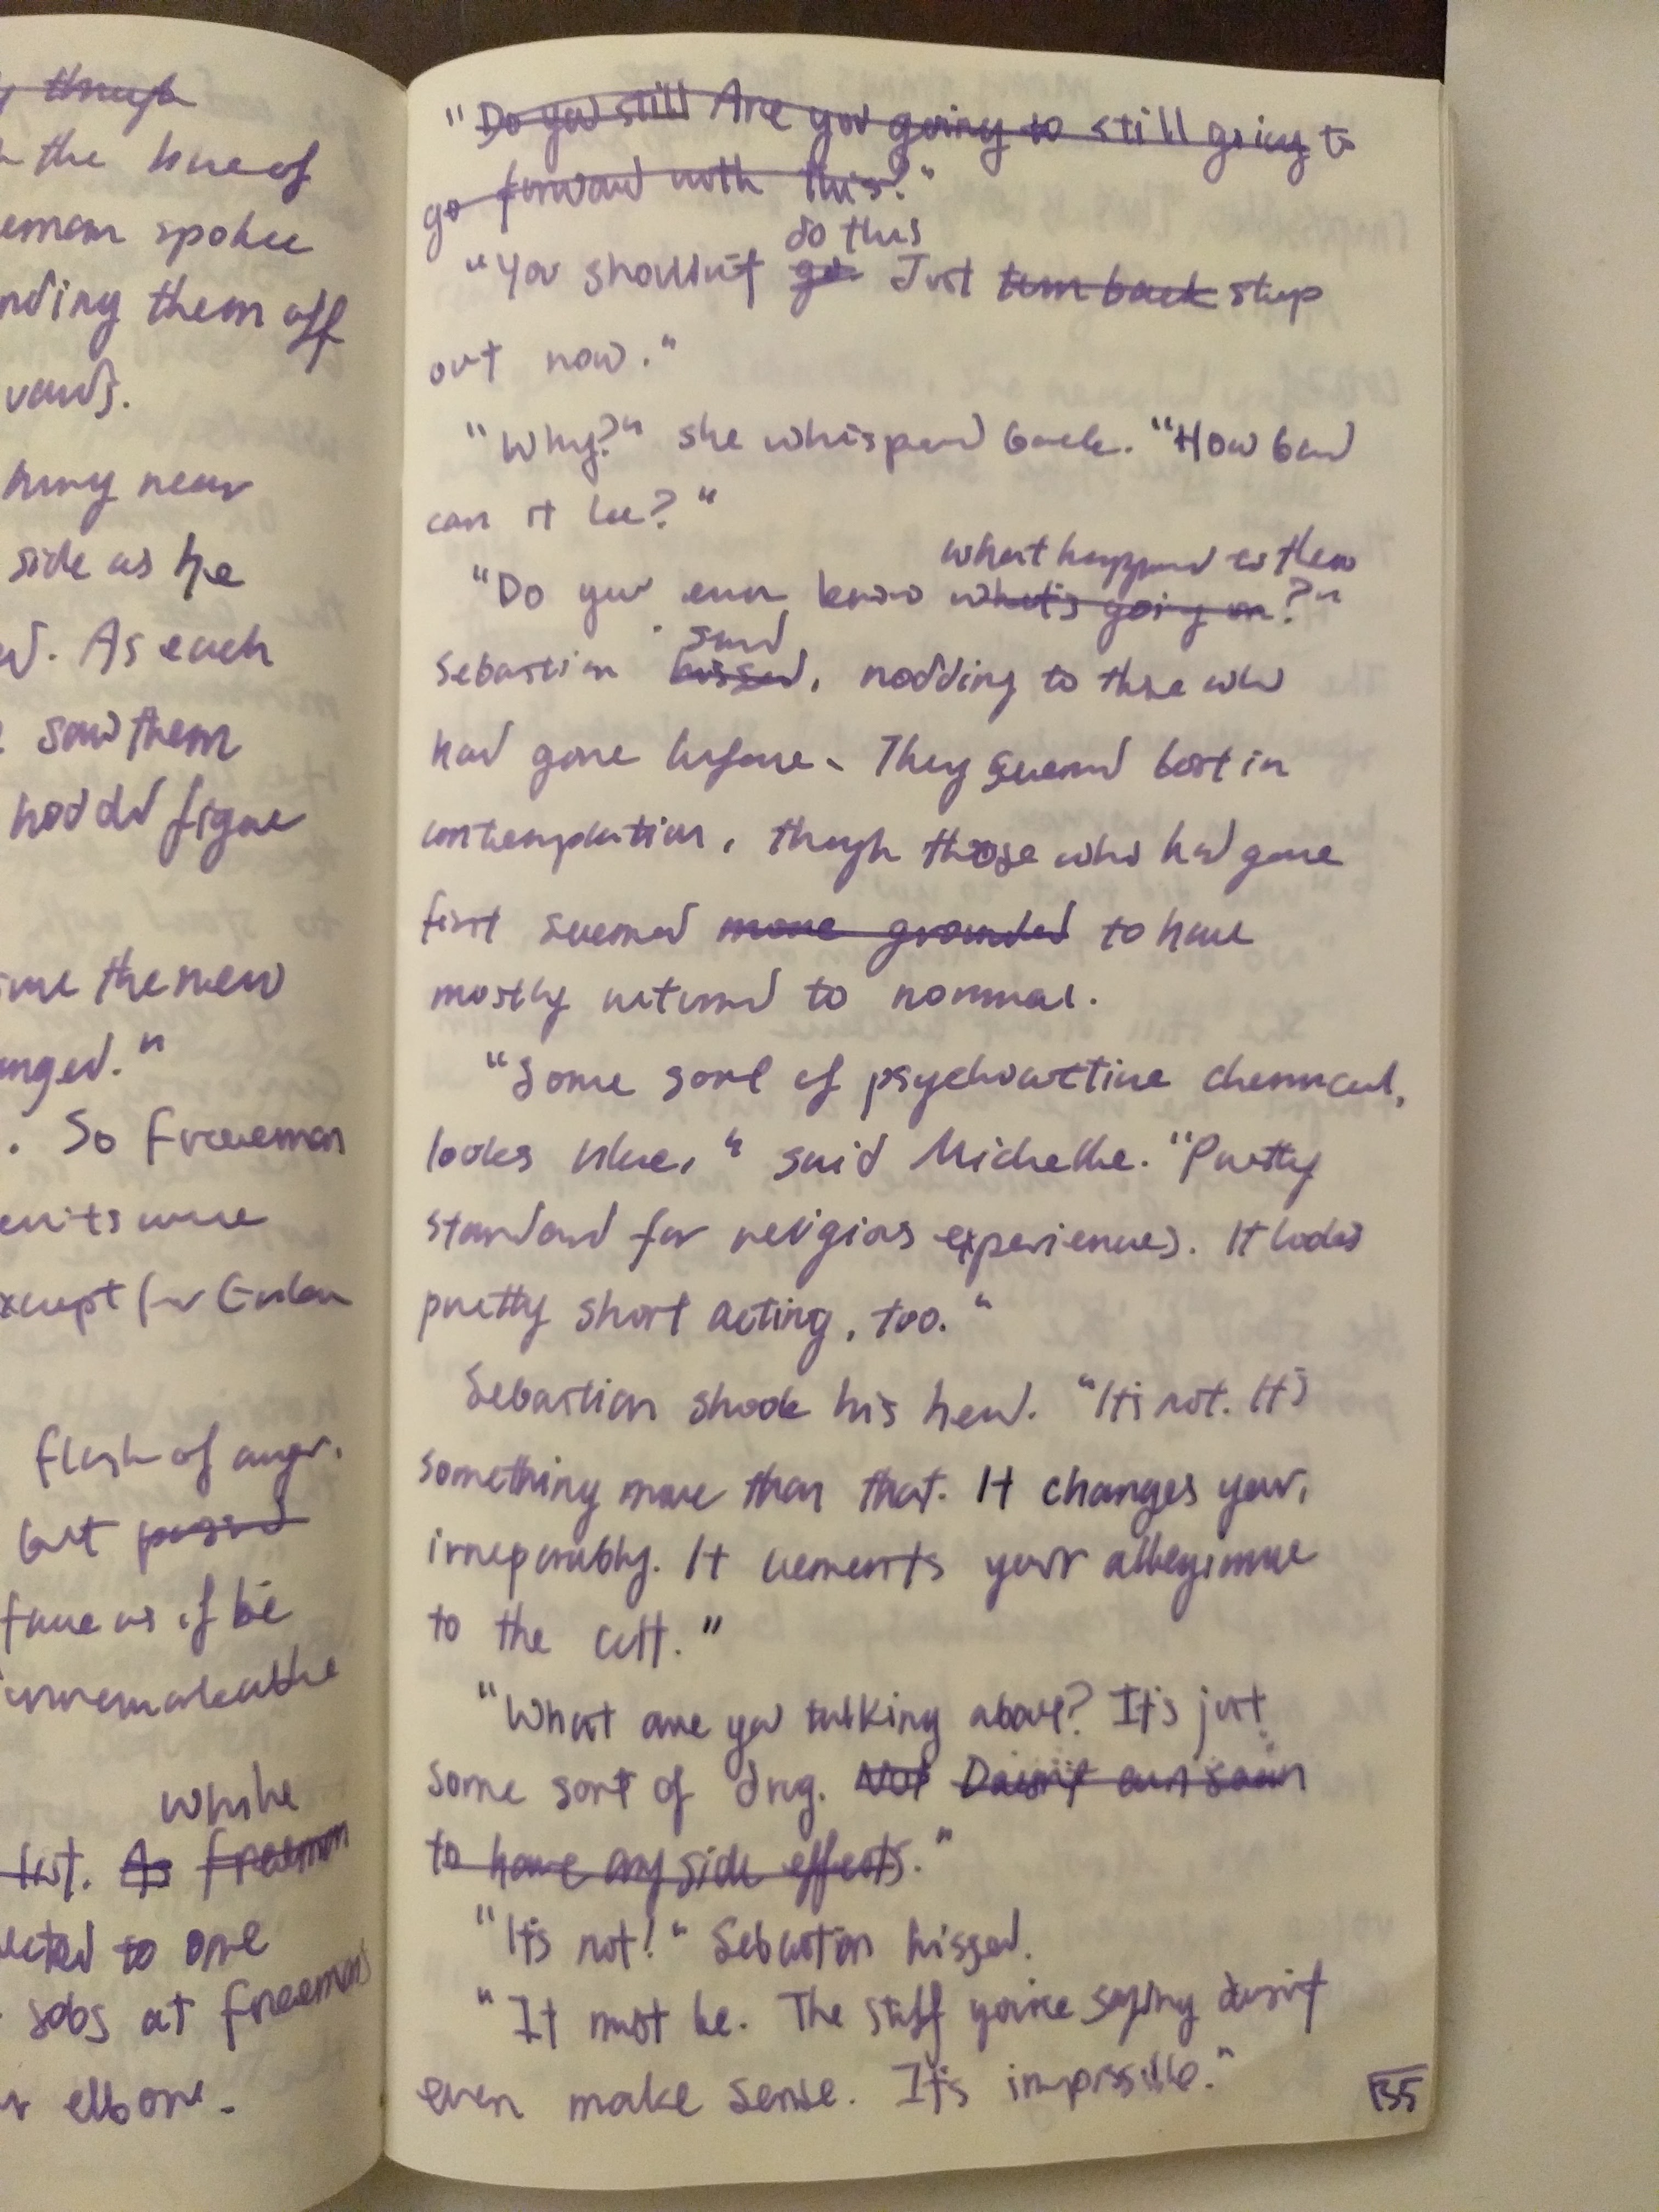 though
the line of
spoke
nding them off
hung near
side as he
. As each
saw them
hooded figure
the new
nged."
. So Freeman
xcept for
flash of anger.
but passed
face as if he
unremarkable
while
As Freeman
ected to one
sobs at Freeman's
elbow.
"Do you still Are you going to still going to
go forward with this?"
do this
"You shouldn't go Just turn back step
out now."
"Why?" she whispered back. "How bad
can it be?"
what happened to them
"Do you even know what's going on?"
said
Sebastian hissed, nodding to those who
had gone before. They seemed lost in
contemplation, though those who had gone
first seemed more grounded to have
mostly returned to normal.
"Some sort of psychoactive chemical,
looks like," said Michelle. "Pretty
standard for religious experiences. It looks
pretty short acting, too."
Sebastian shook his head. "It's not. It's
something more than that. It changes you,
irreparably. It cements your allegiance
to the cult."
"What are you talking about? It's just
some sort of drug. Not Doesn't even seem
to have any side effects."
"It's not!" Sebastian hissed.
"It must be. The stuff you're saying doesn't
even make sense. It's impossible."
135